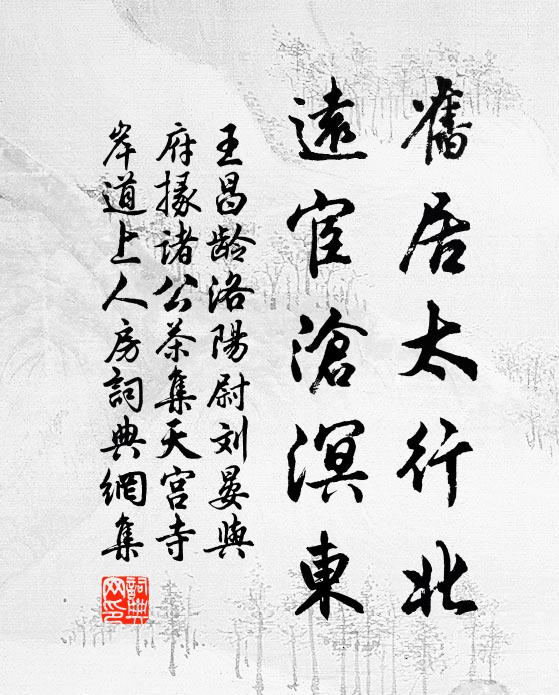 舊居太行北
遠宦滄溟東
王昌龄洛陽尉刘晏與
府掾诸公茶集天宫寺
岸道上人房詞典網集
詞典網印